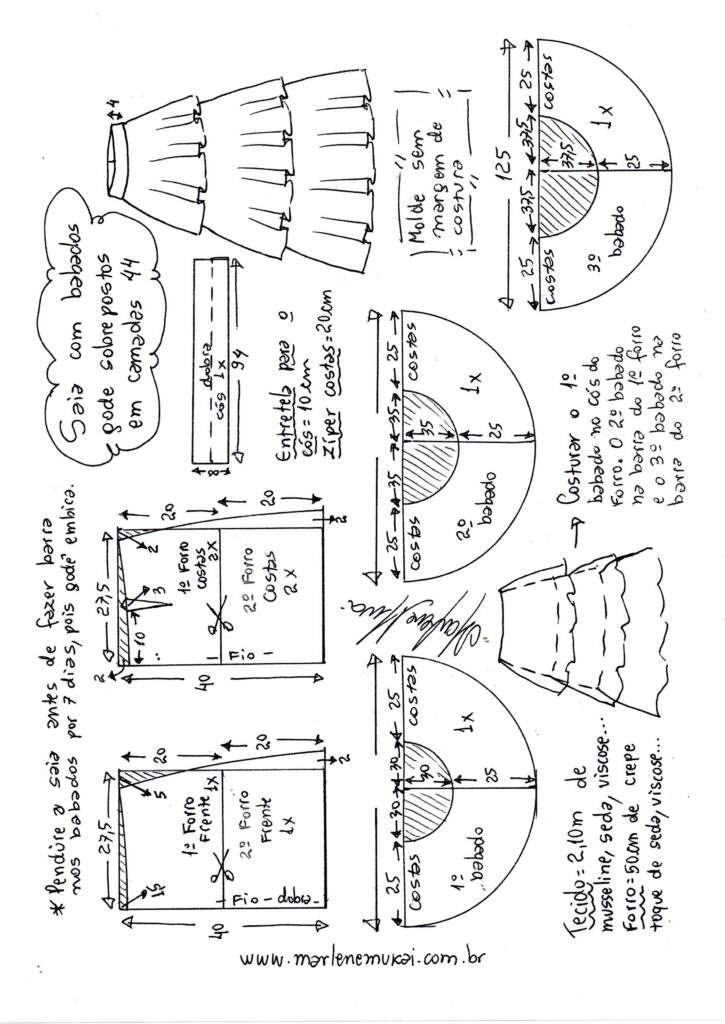 * Pendure a saia antes de fazer barra
nos babados por 7 dias, pois godê embica.
Saia com babados
godê sobrepostos
em camadas 44
4
27,5
15
5
20
20
1º Forro
Frente 1x
2º Forro
Frente
1x
Fio - dobra -
40
2
27,5
2
10
3
2
20
20
1º Forro
costas
2x
2º Forro
Costas
2x
Fio -
40
2
8
dobra
cós 1x
94
Entretela para o
cós = 10 cm
Zíper costas = 20 cm
Molde sem
margem de
costura
25
30
30
25
costas
30
costas
1º
babado
25
1x
25
35
35
25
costas
35
costas
2º
babado
25
1x
125
25
37,5
37,5
25
costas
37,5
costas
3º
babado
25
1x
Tecido = 2,10m de
musseline, seda, viscose...
Forro = 50 cm de crepe
toque de seda, viscose...
Costurar o 1º
babado no cós do
Forro. O 2º babado
na barra do 1º forro
e o 3º babado na
barra do 2º forro
www.marlenemukai.com.br